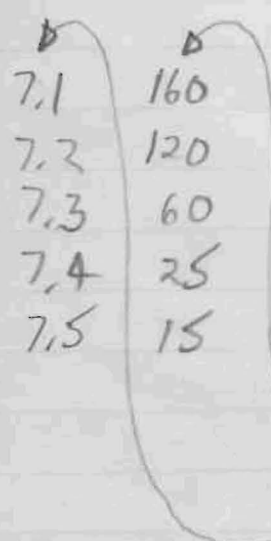 7,1 160
7,2 120
7,3 60
7,4 25
7,5 15